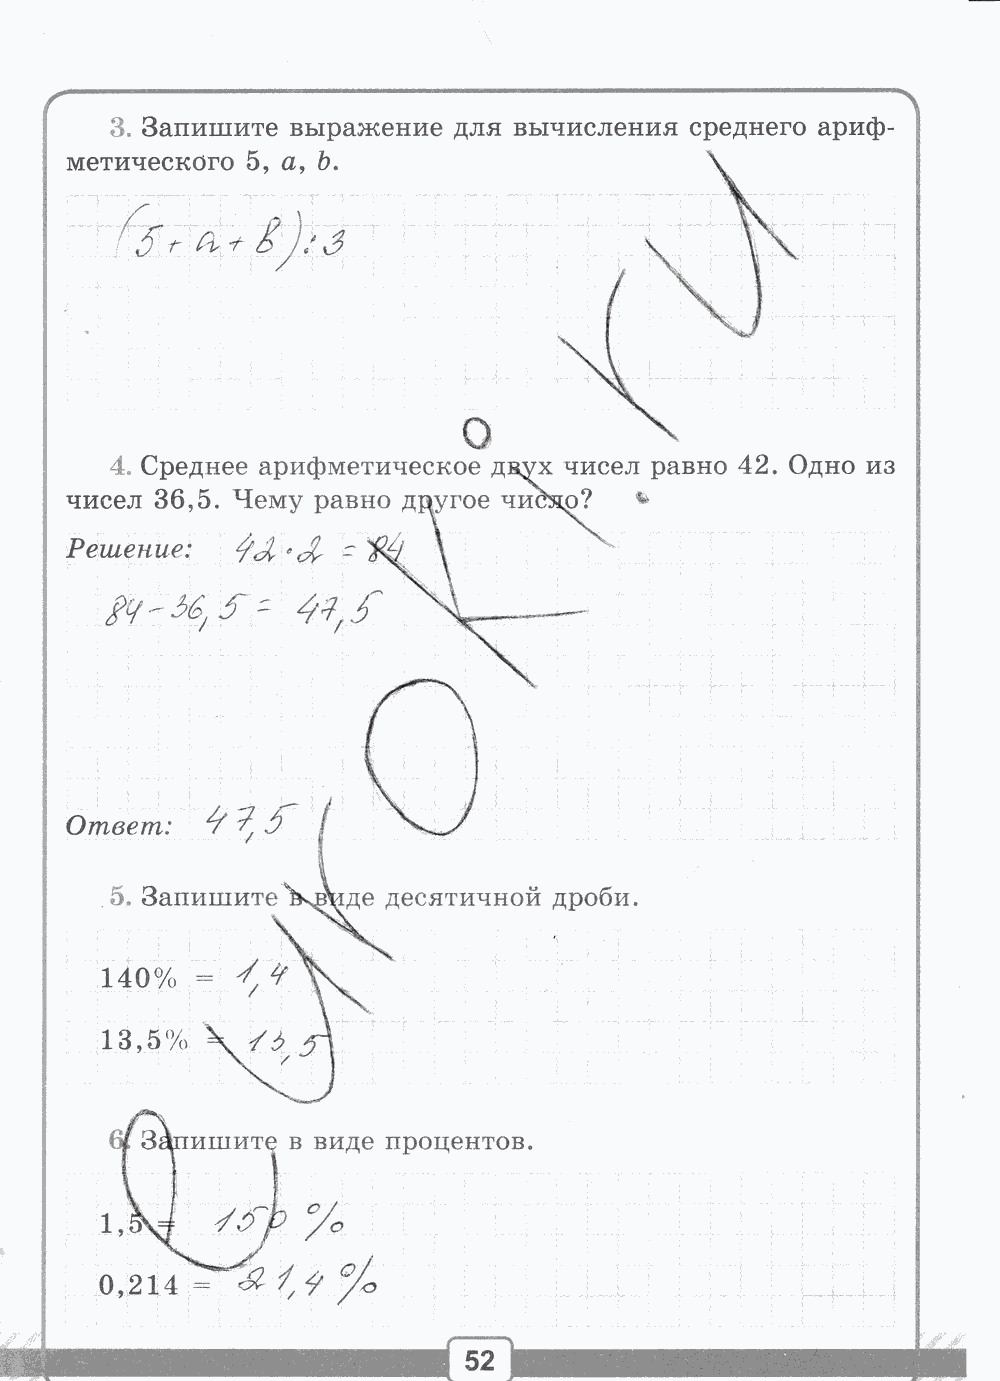 3. Запишите выражение для вычисления среднего ариф-
метического 5, a, b.
(5 + a + b) : 3
4. Среднее арифметическое двух чисел равно 42. Одно из
чисел 36,5. Чему равно другое число?
Решение: 42 · 2 = 84
84 - 36,5 = 47,5
Ответ: 47,5
5. Запишите в виде десятичной дроби.
140% = 1,4
13,5% = 13,5
6. Запишите в виде процентов.
1,5 = 150 %
0,214 = 21,4 %
52
eurokі.ru